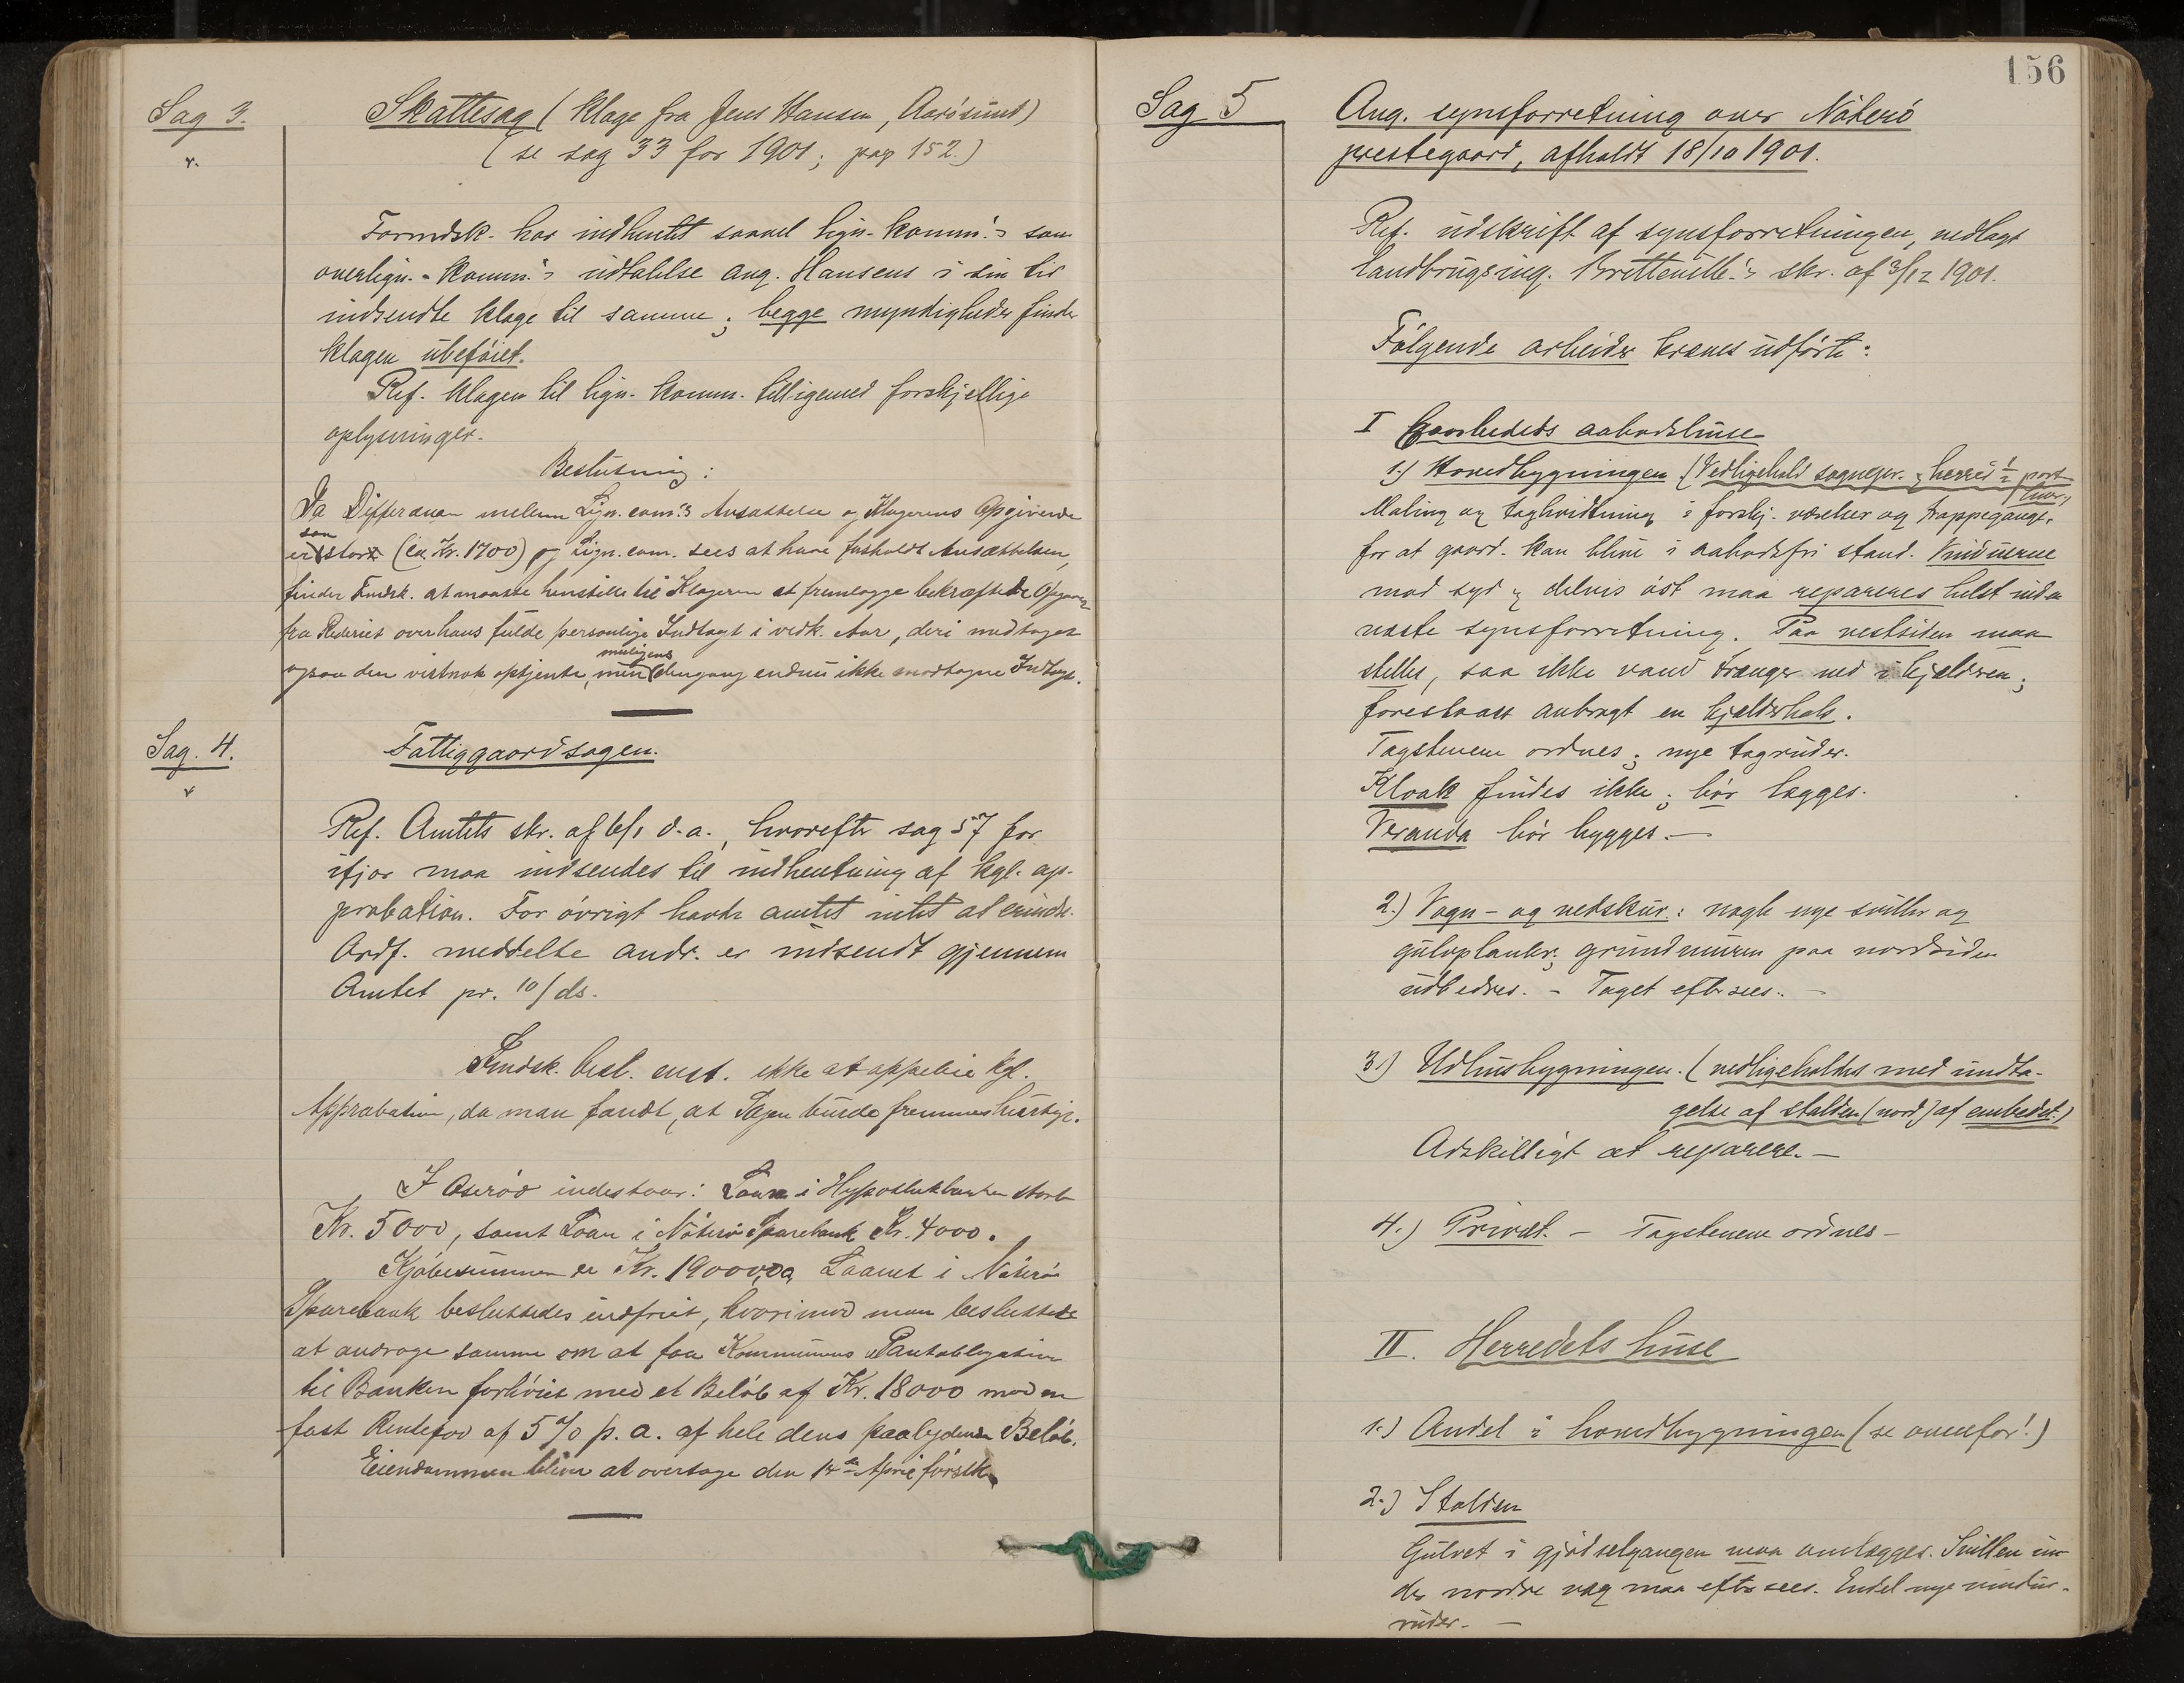 Sag 3.
Skattesag (klage fra Jens Hansen, Aarösund)
(se sag 33 for 1901; pag 152.)
Formdsk. har indhentet saavel lign.-komm.'s som
overlign.-komm.'s udtalelse ang. Hansens i sin tid
indsendte klage til samme; begge myndigheder finder
klagen ubeföiet.
Ref. klagen til lign.-komm. tilligemed forskjellige
oplysninger.
Beslutning:
Da Differansen mellem Lign.com.'s Ansættelse og Klagerens Opgivende
som
er stor (ca Kr. 1700) og Lign.com. sees at have fastholdt Ansættelsen,
finder Fmdsk. at maatte henstille til Klageren at fremlægge bekræftede Opgaver
fra Rederiet over hans fulde personlige Indtægt i vedk. Aar, deri medtaget
muligens
ogsaa den vistnok optjente, men dengang endnu ikke modtagne Indtægt.
Sag. 4.
Fattiggaardsagen.
Ref. Amtets skr. af 6/1 d.a., hvorefter sag 57 for
ifjor maa indsendes til indhentning af kgl. ap-
probation. For övrigt havde amtet intet at erindre.
Ordf. meddelte andr. er indsendt gjennem
Amtet pr. 10/ ds.
Fmdsk. besl. enst. ikke at appelere kgl.
Approbation, da man fandt, at Sagen burde fremmes hurtigt.
I Oseröd indestaar: Laan i Hypothekbanken stort
Kr. 5000, samt Laan i Nöterö Sparebank Kr. 4000.
Kjöbesummen er Kr. 19000,00 Laanet i Nöterö
Sparebank besluttedes indfriet, hvorimod man besluttede
at andrage samme om at faa Kommunens Pantobligation
til Banken forhöiet med et Belöb af Kr. 18000 mod en
fast Rentefod af 5 % p. a. af hele dens paalydende Belöb.
Eiendommen bliver at overtage den 14de April förstk.
156
Sag 5
Ang. synsforretning over Nöterö
prestegaard, afholdt 18/10 1901.
Ref. udskrift af synsforretningen, vedlagt
landbrugsing. skr. af 3/12 1901.
Fölgende arbeider kræves udförte:
I Embedets aabodshuse
1.) Hovedbygningen (Vedligehold sogneprr. & herred ½ part
hver)
Maling og taghvidtning i forskj. værelser og trappegange,
for at gaard. kan blive i aabodsfri stand. Vinduerne
mod syd & delvis öst maa repareres helst inden
næste synsforretning. Paa vestsiden maa
stelles, saa ikke vand trænger ned i kjelderen;
foreslaaes anbragt en kjelderhals.
Tagstenene ordnes; nye tagruder.
Kloak findes ikke; bör lægges.
Veranda bör bygges. —
2.) Vogn- og vedskur: nogle nye sviller og
gulvplanker; grundmuren paa nordsiden
udbedres. - Taget eftersees. —
3.) Udhusbygningen. (vedligeholdes med undta-
gelse af stalden (nord) af embedet.)
Adskilligt at reparere. —
4.) Privet. — Tagstenene ordnes —
II. Herredets huse
1.) Andel i hovedbygningen (se ovenfor!)
2.) Stalden
Gulvet i gjödselgangen maa omlægges. Svillen un-
der nordre væg maa eftersees. Endel nye vindus-
ruder. —